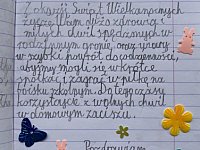 Z okazji Świąt Wielkanocnych
życzę Wam dużo zdrowia i
miłych chwil spędzonych w
rodzinnym gronie, oraz wiary
w szybki powrót do codzienności,
abyśmy mogli się wkrótce
spotkać i zagrać w piłkę na
boisku szkolnym. Do tego czasu
korzystajcie z wolnych chwil
w domowym zaciszu.
Pozdrawiam